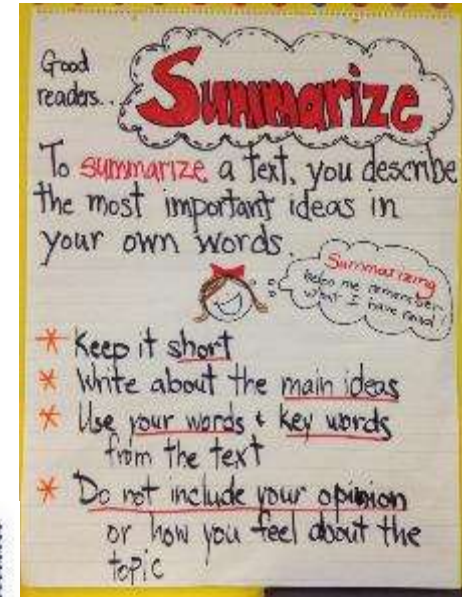 Good
readers...
Summarize
To summarize a text, you describe
the most important ideas in
your own words.
Summarizing
helps me remember
what I have read!
* Keep it short
* Write about the main ideas
* Use your words & key words
from the text
* Do not include your opinion
or how you feel about the
topic